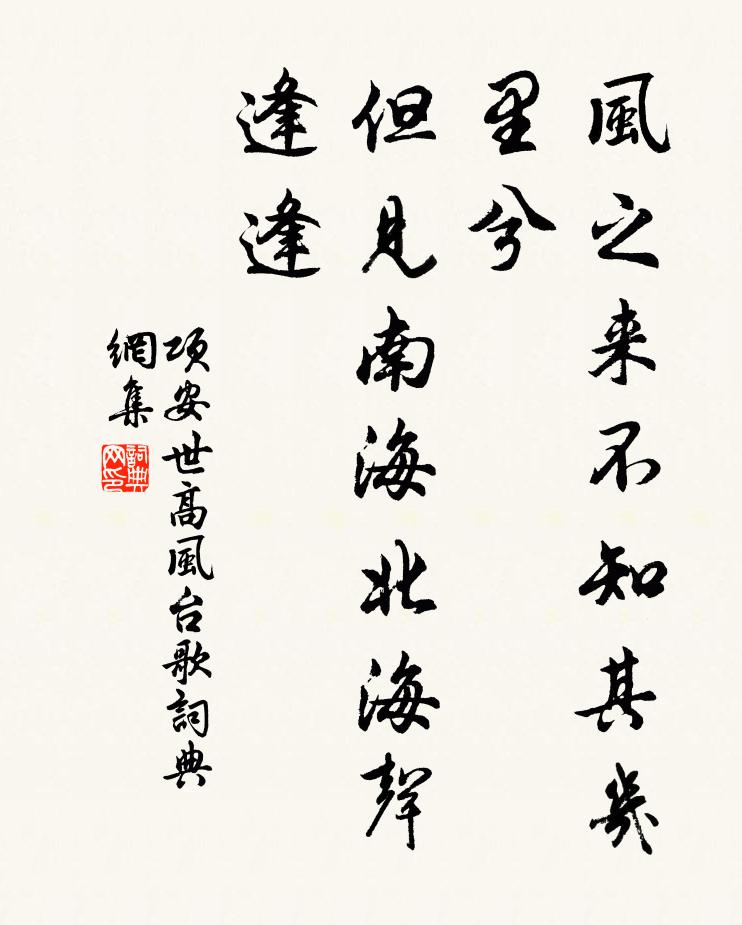 風之来不知其幾
里兮
但見南海北海聲
逢逢
項安世高風台歌詞典
網集
詞典
网印